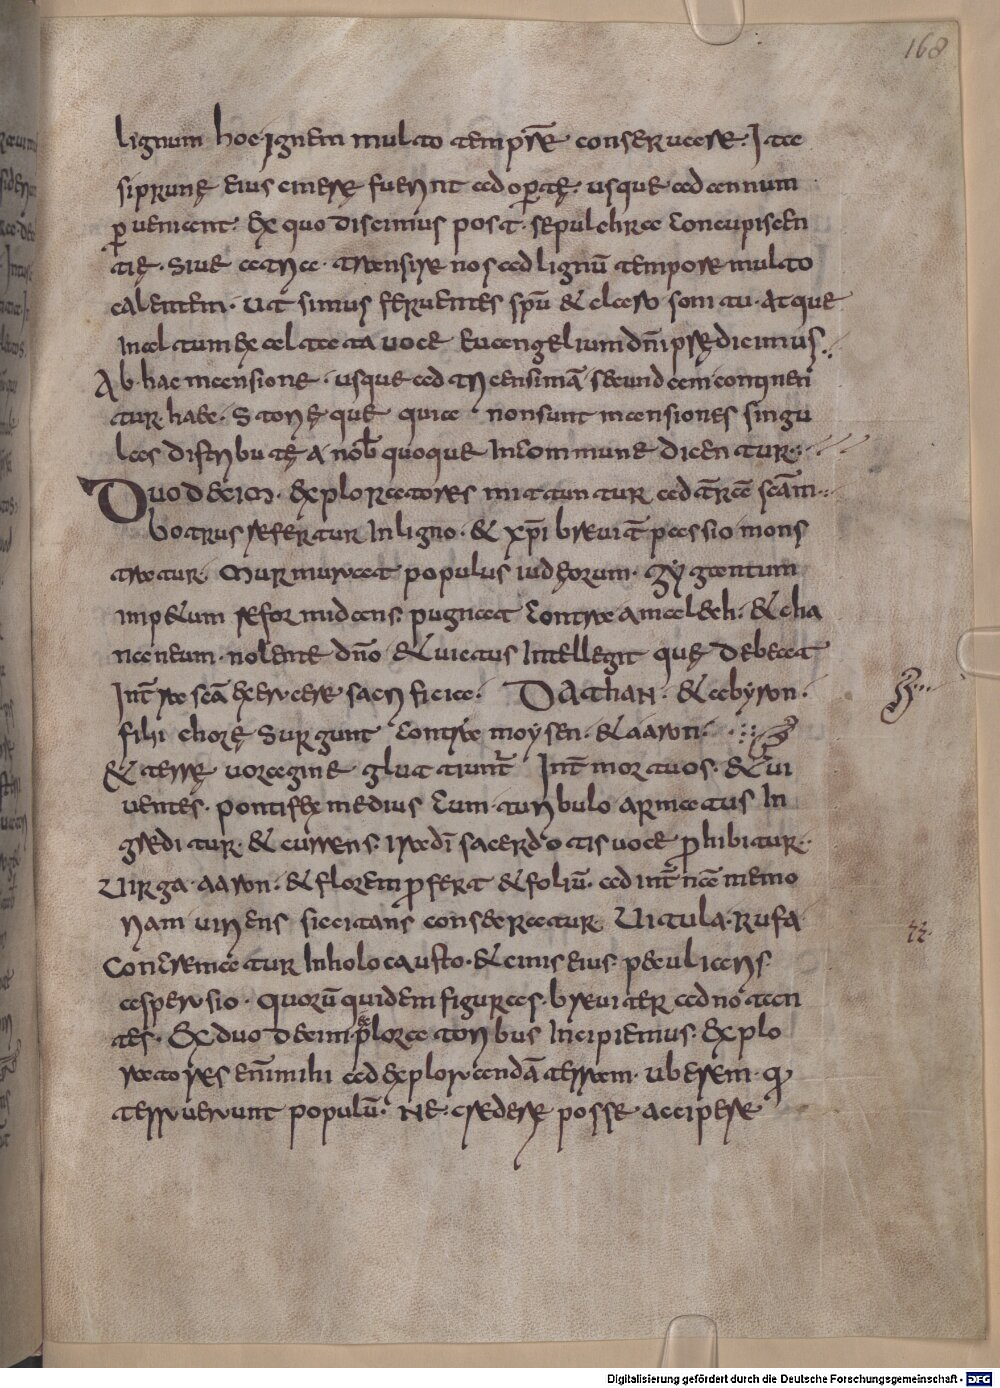 168
lignum hoc ignem multo tempr̄e conseruare. Ita
si prunę eius cinere fuerint adop̱tę. usque ad annum
p̱ueniant. Ex quo discimus post sepulchra concupiscen
tię. siue atria. transire nos ad lignū tempore multo
calentem. ut simus feruentes spū & claro sonitu. atque
in celatum exaltata uoce euangelium dn̄i prędicimus.
Ab hac incensione. usque ad tricensimā secundam continen
tur. haec. Storię que quia non sunt incensiones singu
las distribute a nob̄ quoque in commune dicentur.
Duodecim. exploratores mittuntur ad tr̄am scam̄.
botrus refertur in ligno. & xp̄i breuit̄ passio mons
tratur. murmurat populus iudęorum. gigantum
imp&um reformidans. pugnat contra amalech. & cha
naneum. nolente dn̄o & uictus intellegit quę debeat
int̄ra scā exercere sacrificia. Dathan. & abyron.
filii chorę surgunt contra moysen. & aaron.
& terrę uoragine glutiunt̄ Int̄ mortuos. & ui
uentes. pontifex medius cum turibulo armatus in
greditur. & currens. ira dī sacerdotis uoce p̱hibitur.
Uirga aaron. & florem p̱fert & foliū. ad int̄nā memo
riam uirens siccitas consecratur. Uitula. Rufa
concrematur in holocausto. & cinis eius. peculiaris.
aspersio. quorū quidem figuras. breuiter adnotan
tes. Ex duodecim p̱loratoribus incipiemus. Explo
ratores enim̄ ihi ad explorandā terram. uberem. q̱
terruerunt populū. Ne. credere posse accipere